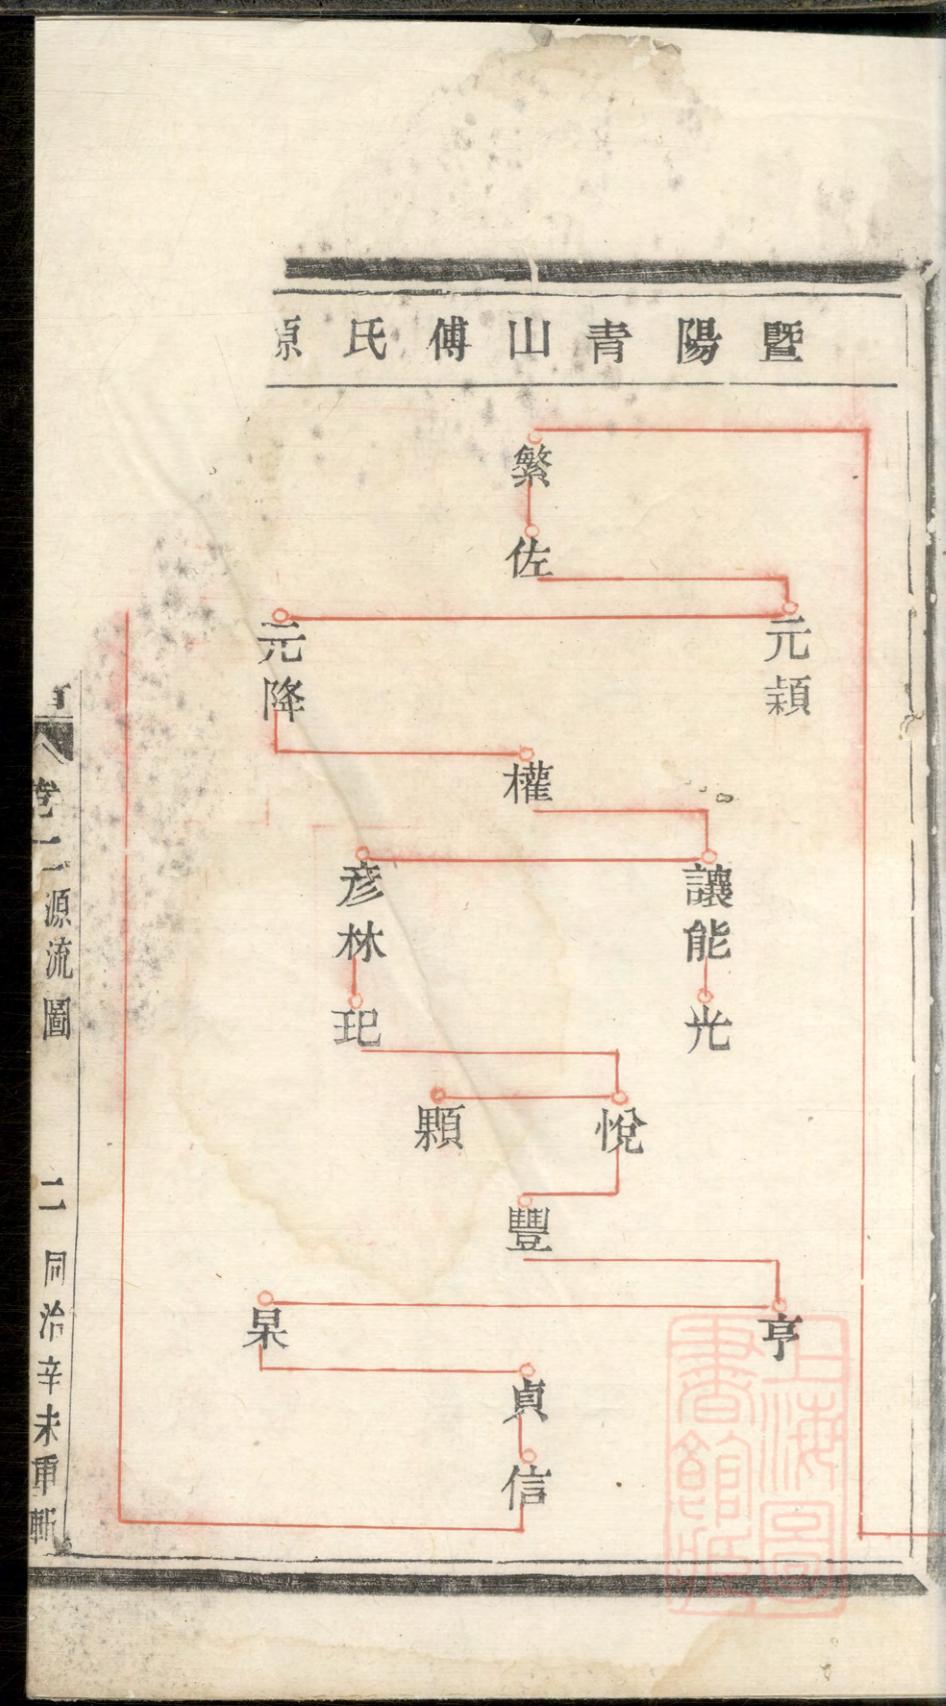 暨陽青山傅氏源
繁
佐
元穎
元降
權
讓能
彥林
光
玘
悅
顆
豐
亨
杲
貞
信
卷一源流圖
二
同治辛未重
上海圖書館藏